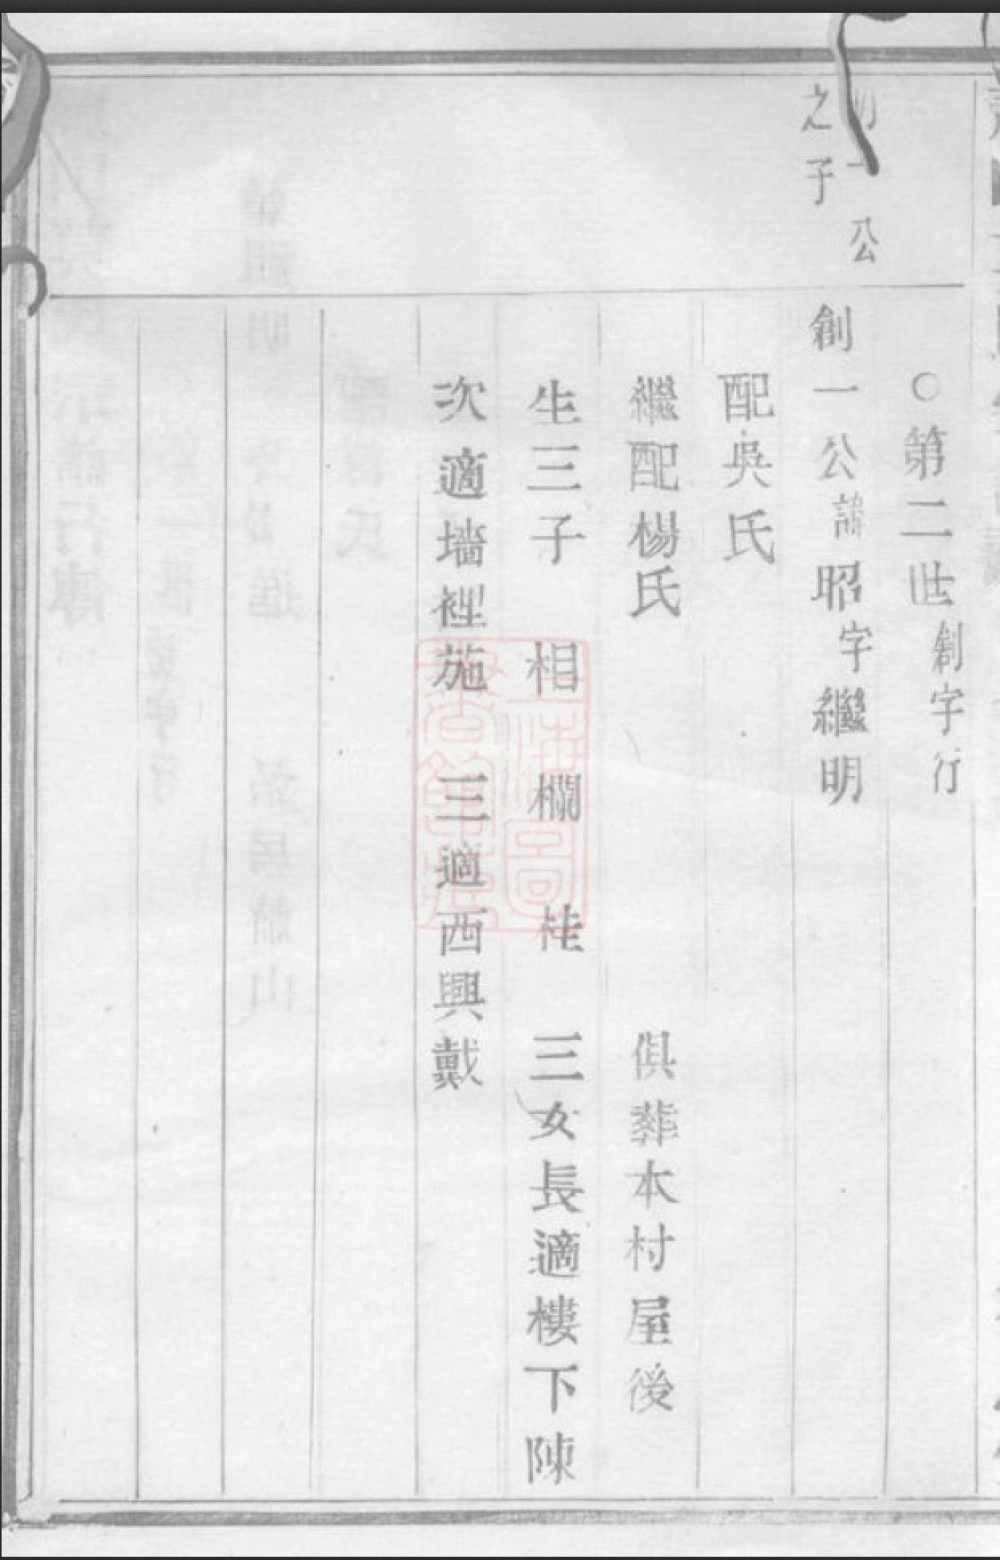 ○第二世創字行
初一公
之子
創一公諱昭字繼明
配吳氏
繼配楊氏 俱葬本村屋後
生三子 相 欄 桂 三女長適樓下陳
次適墻裡施 三適西興戴
上海圖
書館藏